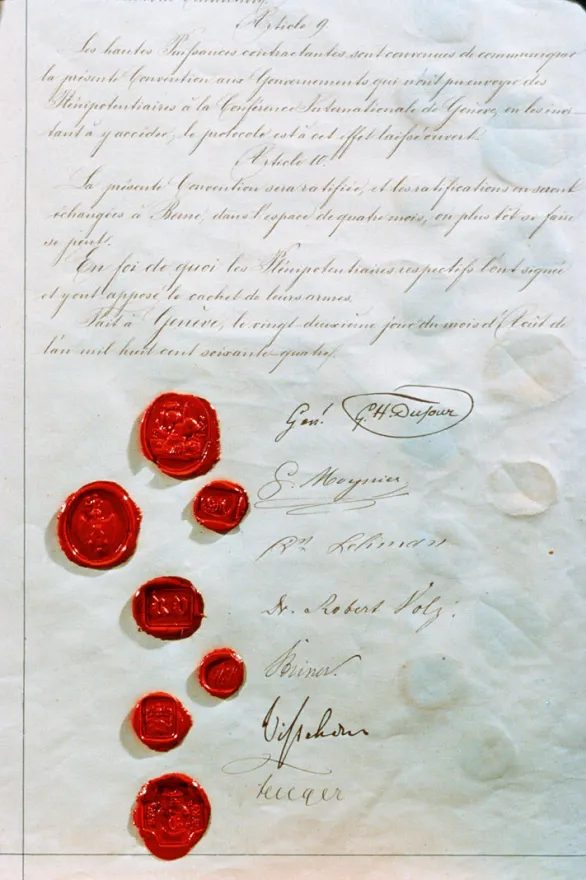 Article 9.
Les hautes Puissances contractantes sont convenues de communiquer
la présente Convention aux Gouvernements qui n'ont pu envoyer des
Plénipotentiaires à la Conférence Internationale de Genève, en les invi-
tant à y accéder, le protocole est à cet effet laissé ouvert.
Article 10.
La présente Convention sera ratifiée, et les ratifications en seront
échangées à Berne, dans l'espace de quatre mois, ou plus tôt si faire
se peut.
En foi de quoi les Plénipotentiaires respectifs l'ont signée
et y ont apposé le cachet de leurs armes.
Fait à Genève, le vingt deuxième jour du mois d'Août de
l'an mil huit cent soixante-quatre.
Genl. G. H. Dufour
G. Moynier
Dr. Robert Volz.
Steiner.
Visschers